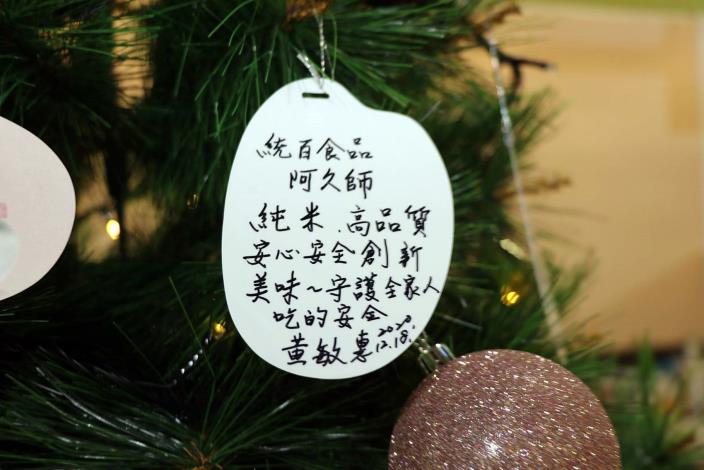 統百食品
阿久師
純米、高品質
安心安全創新
美味~守護全家人
吃的安全
黃敏惠 2020 12.18.